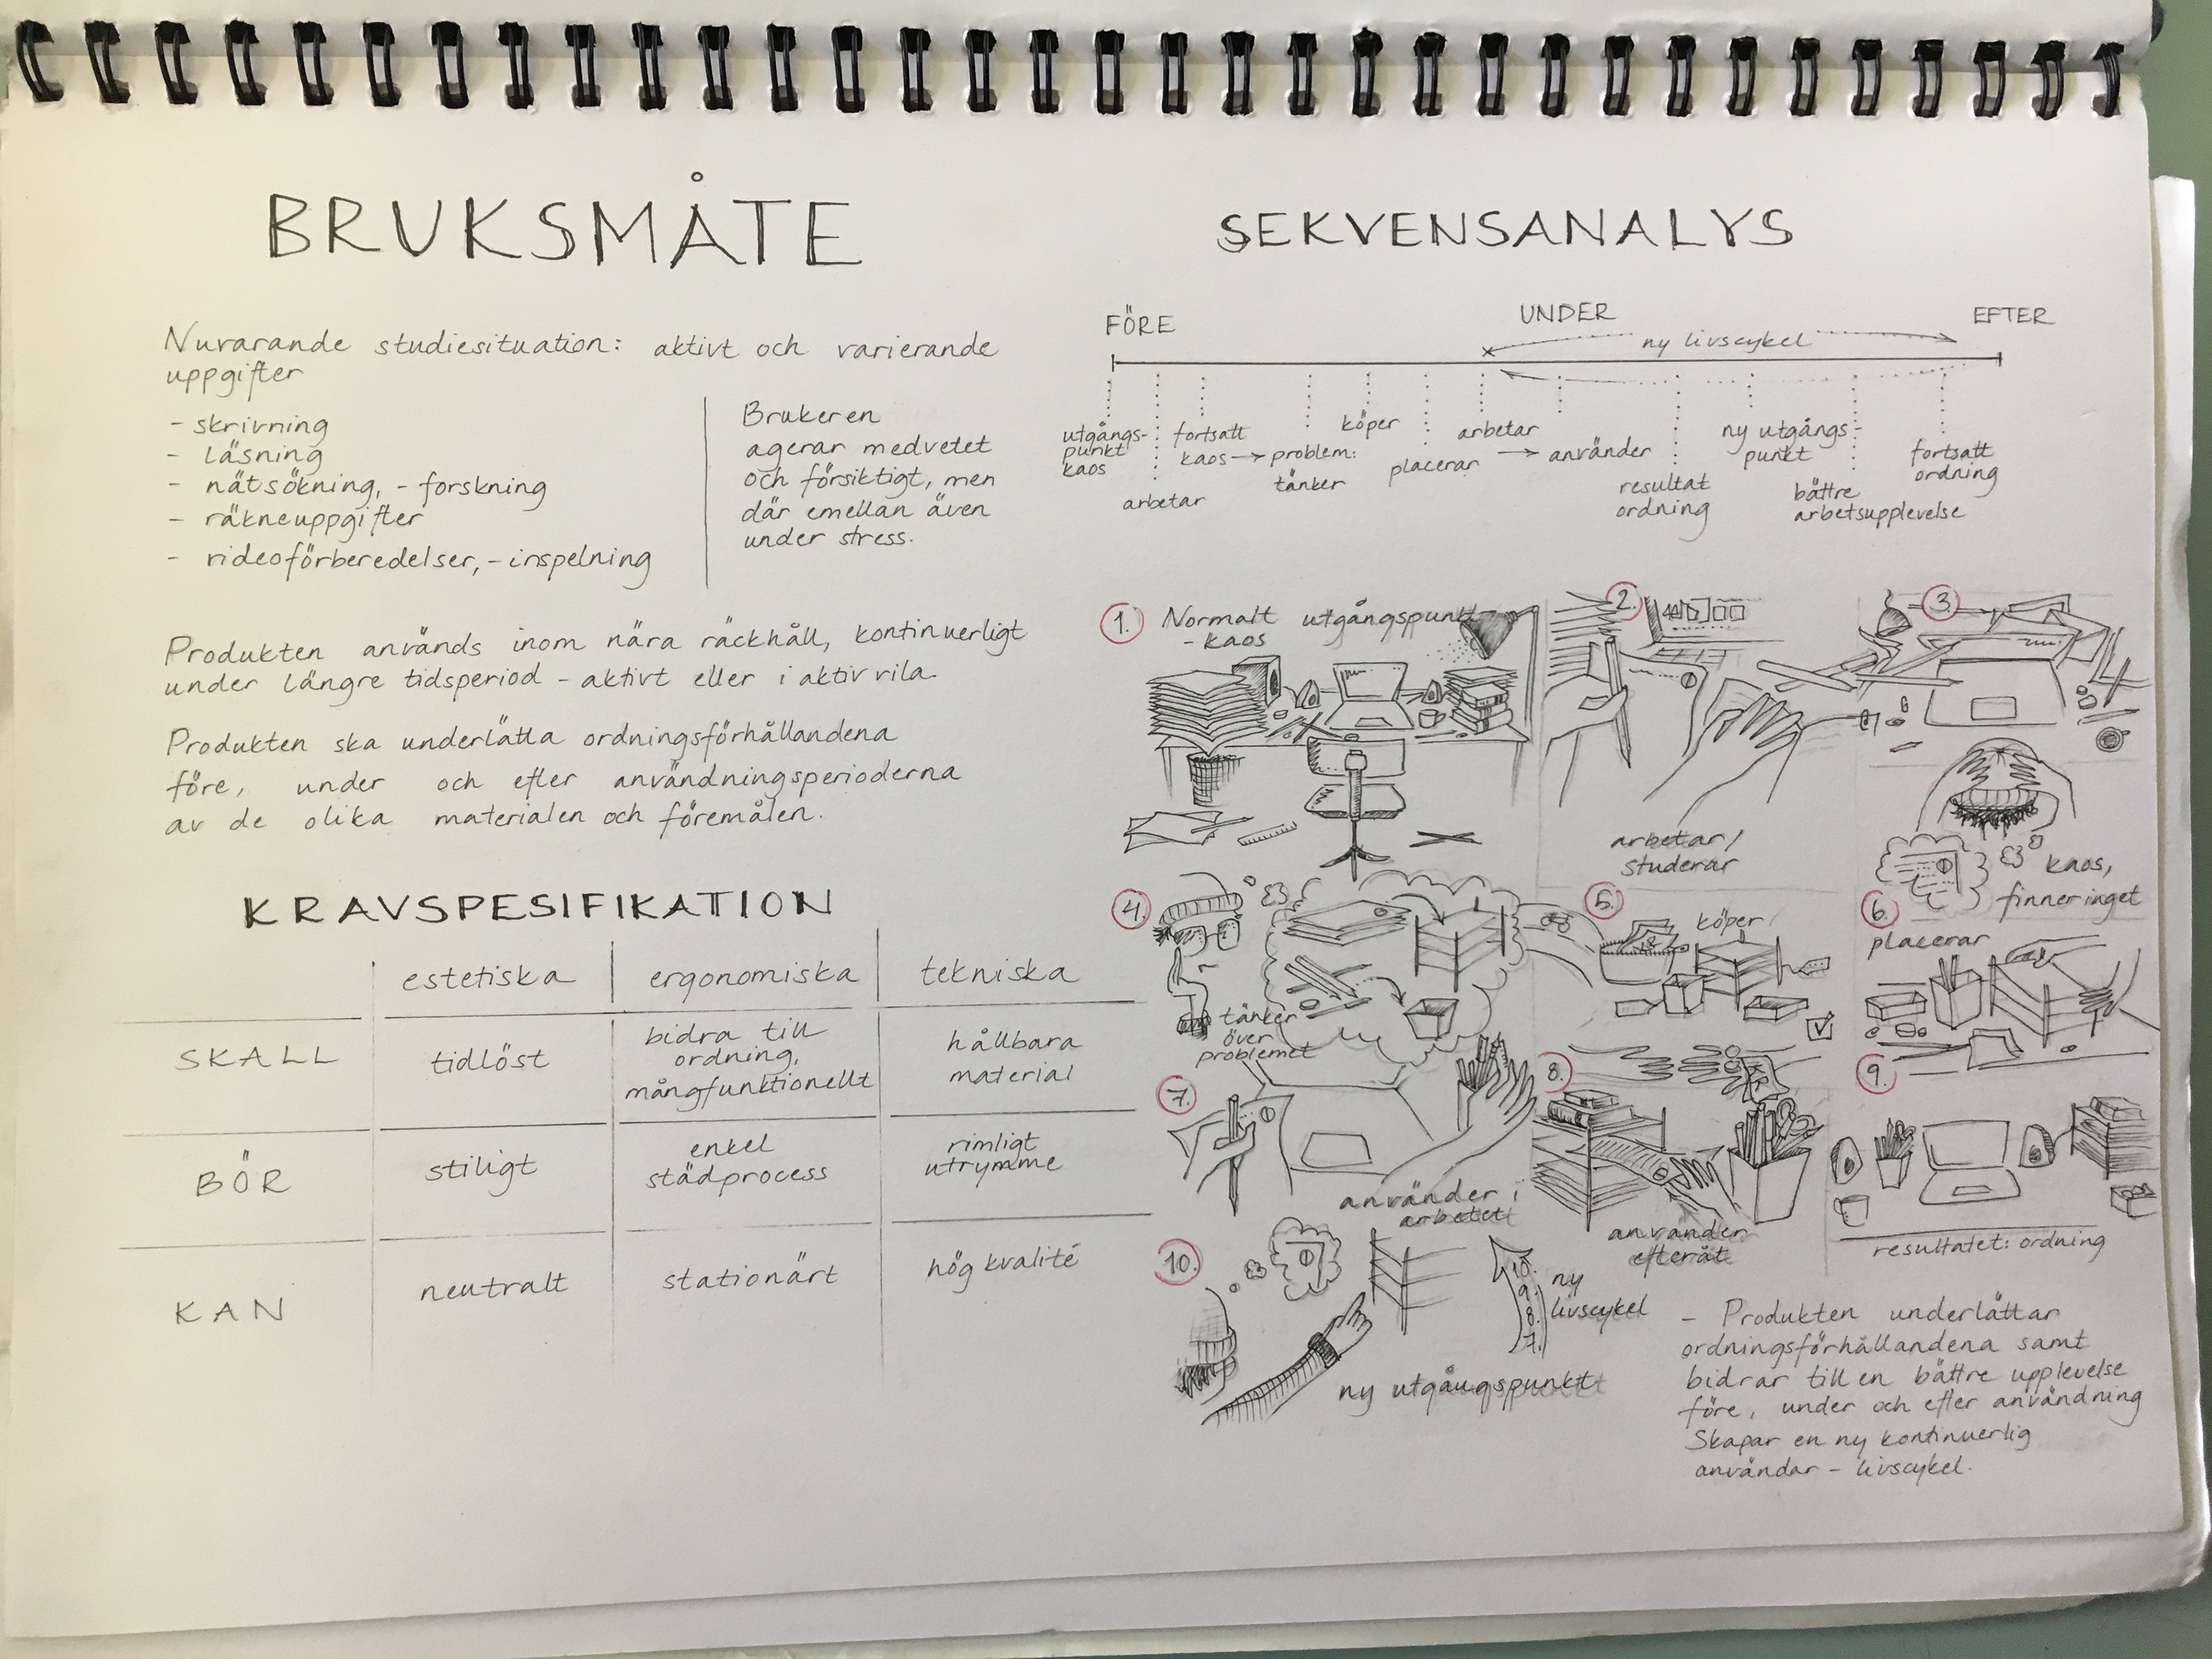 BRUKSMÅTE
Nuvarande studiesituation: aktivt och varierande
uppgifter
- skrivning
- läsning
- nätsökning, - forskning
- räkneuppgifter
- videoförberedelser, - inspelning
Brukeren
agerar medvetet
och försiktigt, men
där emellan även
under stress.
Produkten används inom nära räckhåll, kontinuerligt
under längre tidsperiod - aktivt eller i aktiv vila.
Produkten ska underlätta ordningsförhållandena
före, under och efter användningsperioderna
av de olika materialen och föremålen.
KRAVSPESIFIKATION
estetiska ergonomiska tekniska
SKALL
tidlöst
bidra till
ordning,
mångfunktionellt
hållbara
material
BÖR
stiligt
enkel
städprocess
rimligt
utrymme
KAN
neutralt
stationärt
hög kvalité
SEKVENSANALYS
FÖRE
UNDER
EFTER
ny livscykel
utgångs-
punkt
kaos
arbetar
fortsatt
kaos → problem:
tänker
köper
placerar
arbetar
→ använder
resultat
ordning
ny utgångs-
punkt
bättre
arbetsupplevelse
fortsatt
ordning
1. Normalt utgångspunkt
- kaos
2.
arbetar/
studerar
3.
kaos,
finner inget
4.
tänker
över
problemet
5.
köper
6.
placerar
7.
använder i
arbetet
8.
KR
använder
efteråt
9.
resultatet: ordning
10.
ny utgångspunkt
10.
9.
8.
7.
ny
livscykel
- Produkten underlättar
ordningsförhållandena samt
bidrar till en bättre upplevelse
före, under och efter användning
Skapar en ny kontinuerlig
användar - livscykel.